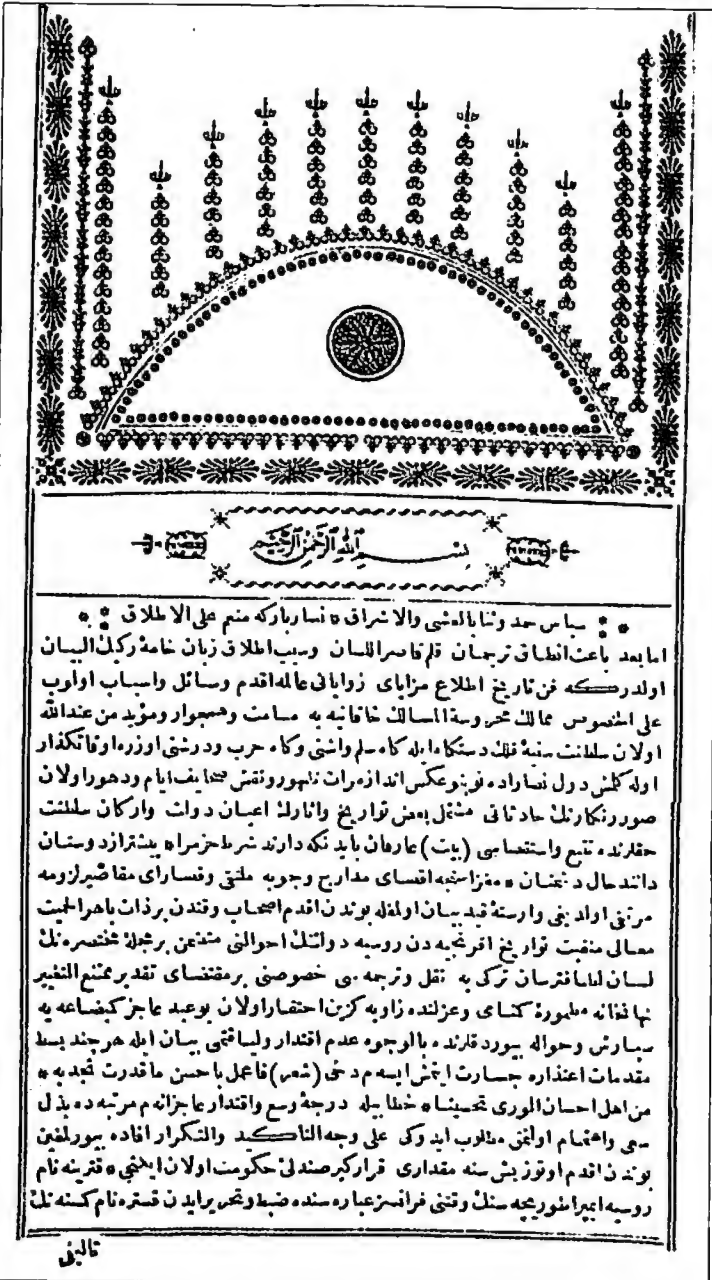 بسم الله الرحمن الرحيم
سپاس حمد وثنا بالعشی والاشراق * نسار بارکه منعم علی الاطلاق
اما بعد باعث انطاق ترجمان قلم قاصر اللسان وسبب اطلاق زبان خامهٔ رکیك البیان
اولدرکه فن تاریخ اطلاع مزایای زوایای عالمه اقدم وسائل واسباب اولوب
علی الخصوص ممالك محروسة المسالك خاقانیه یه مسامت وهمجوار ومؤید من عندالله
اولان سلطنت سنیهٔ فلك دستکاه ایله کاه سلم واشتی وکاه حرب ودرشتی اوزره اوقاتکذار
اوله کلمش دول نصاراده نوبنو عکس انداز مرات ظهور ونقش صحایف ایام ودهور اولان
صور رنکارنك حادثاتی مشتمل بعض تواریخ واثارك اعیان دولت وارکان سلطنت
حقلرنده تتبع واستقصاسی (بیت) عارفان باید نکه دارند شرط حزم را * پیشتر از دوستان
دانند حال دشمنان * مغزاسنجه اقصای مدارج وجوبه ملتقی وقصارای مقاصیر لزومه
مرتقی اولدیغی وارستهٔ قید بیان اولمغله بوندن اقدم اصحاب وقتدن بر ذات باهر الحمیت
معالی منقبت تواریخ افرنجیه دن روسیه دولتنك احوالنی متضمن بر مجلهٔ مختصره نك
لسان لطافترسان ترکی یه نقل وترجمه سی خصوصنی بر مقتضای تقدیر ممتنع التغییر
نهانخانه مطمورهٔ کمنامی وعزلتده زاویه کزین احتقار اولان بو عبد عاجز کم بضاعه یه
سپارش وحواله بیوردقلرنده بالوجوه عدم اقتدار ولیاقتمی بیان ایله هر چند بسط
مقدمات اعتذاره جسارت ایتمش ایسه م دخی (شعر) فاعمل باحسن ما قدرت تجد به *
من اهل احسان الوری تحسینا * خطابیله درجهٔ وسع واقتدار عاجزانه م مرتبه ده بذل
سعی واهتمام اولنمق مطلوب ایدوکی علی وجه التاکید والتکرار افاده بیورلمغین
بوندن اقدم اوتوز بش سنه مقداری قرارکیر صندلیٔ حکومت اولان ایکنجی * قترینه نام
روسیه ایمپراطوریچه سنك وقتنی فرانسز عباره سنده ضبط وتحریر ایدن قستره نام کسنه نك
تالیفی